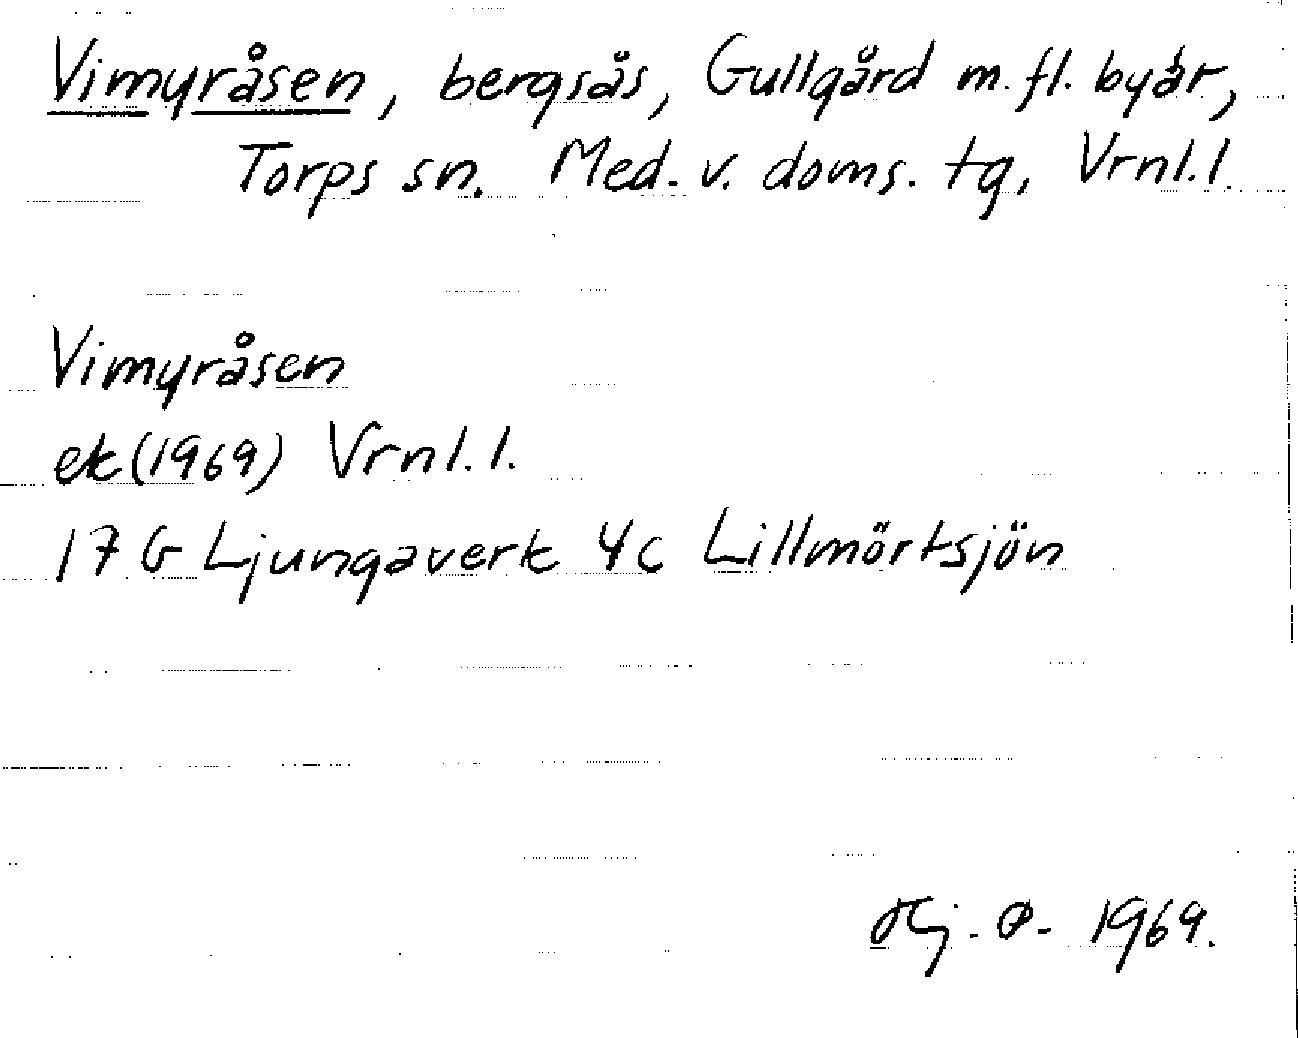 Vimyråsen, bergsås, Gullgård m. fl. byar,
Torps sn. Med. v. doms. tg, Vrnl. l.
Vimyråsen
ek (1969) Vrnl. l.
17 G Ljungaverk 4c Lillmörtsjön
1969.